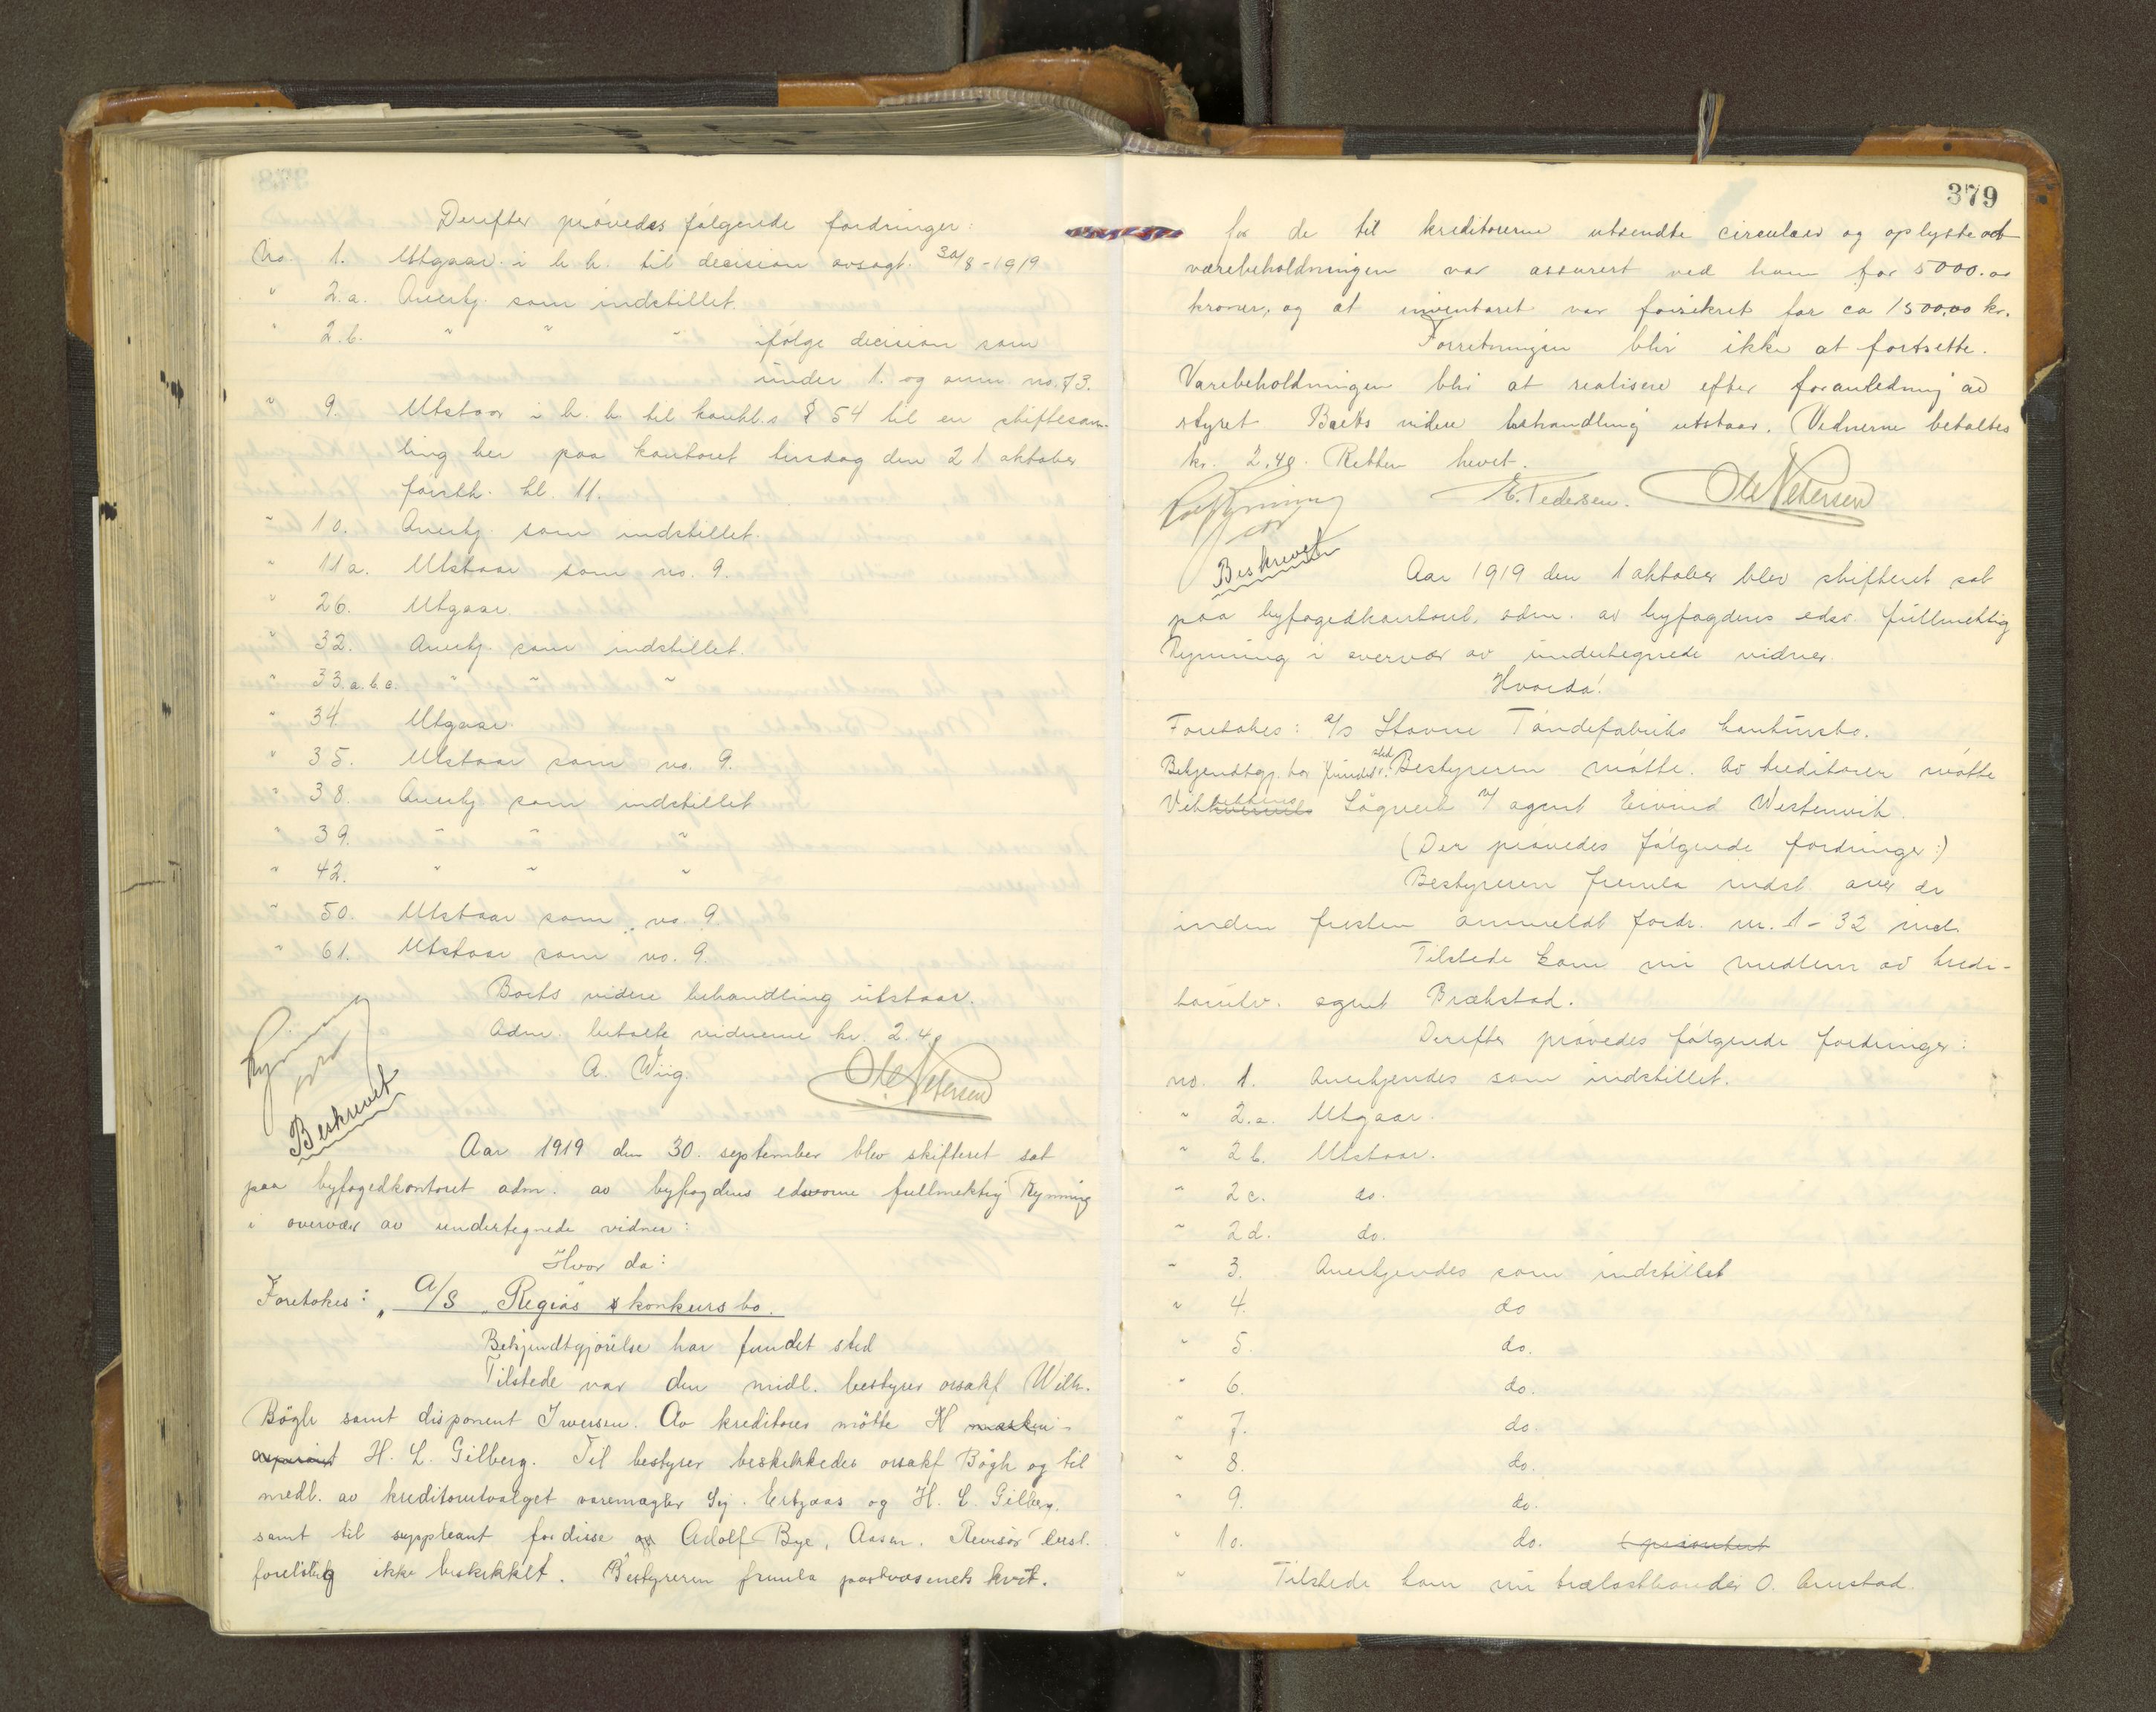 Derefter prövedes følgende fordringer:
No. 1. Utgaar i h. h. til decision avsagt 30/8-1919
" 2.a. Anerkj. som indstillet.
" 2.b. " " " ifölge decision som
under 1. og anm. no. 73.
" 9. Utstaar i h. h. til konkl.s § 54 til en skiftesam-
ling her paa kontoret tirsdag den 21 oktober
förstk. kl. 11.
" 10. Anerkj. som indstillet.
" 11a. Utstaar som no. 9.
" 26. Utgaar
" 32. Anerkj. som indstillet.
" 33.a.b.c. " " "
" 34. Utgaar.
" 35. Utstaar som no. 9.
" 38. Anerkj som indstillet
" 39. " " "
" 42. " " "
" 50. Utstaar som no. 9.
" 61. Utstaar som no. 9.
Boets videre behandling utstaar.
Adm. betalte vidnerne kr. 2.40
Rynning
A. Wiig. Ole Petersen
Beskrevet
Aar 1919 den 30. september blev skifteret sat
paa byfogedkontoret adm. av byfogdens edsvorne fullmektig Rynning
i overvær av undertegnede vidner:
Hvor da:
Foretokes: "A/S "Regias" konkursbo.
Bekjendtgjörelse har fundet sted
Tilstede var den midl. bestyrer orsakf Wilh.
Bögh samt disponent Iversen. Av kreditorer mötte H maskin-
H. L. Gilberg. Til bestyrer beskikkedes orsakf Bögh og til
medl. av kreditorutvalget varemægler Sig. Ertzaas og H. L. Gilberg.
samt til suppleant for disse Adolf Bye, Aasen. Revisor
forelöbig ikke beskikket. Bestyreren fremla postvæsenets kvit.
379
for de til kreditorerne utsendte circulær og oplyste at
varebeholdningen var assurert ved ham for 5000.00
kroner, og at inventaret var forsikret for ca 1500,00 kr.
Forretningen blir ikke at fortsette.
Varebeholdningen blir at realisere efter foranledning av
styret Boets videre behandling utstaar. Vidnerne betaltes
kr. 2.40. Retten hevet.
Rynning E. Pedersen. Ole Petersen
Beskrevet
Aar 1919 den 1 oktober blev skifteret sat
paa byfogedkontoret, adm. av byfogdens edsv. fullmektig
Rynning i overvær av undertegnede vidner.
Hvorda!
Foretokes: A/S Stavne Töndefabriks konkursbo.
Bekjendtgj. har fundet sted. Bestyreren mötte. Av kreditorer mötte
Sögneth v/ agent Eivind Westenvik.
(Der prövedes følgende fordringer:)
Bestyreren fremla indst. over de
inden fristen anmeldt fordr. nr. 1 - 32 incl.
Tilstede kom nu medlem av kredi-
torutv. agent Brækstad.
Derefter prövedes følgende fordringer:
no. 1. Anerkjendes som indstillet.
" 2.a. Utgaar.
" 2b. Utstaar.
" 2c. do.
" 2d. do.
" 3. Anerkjendes som indstillet
" 4. do
" 5. do.
" 6. do.
" 7. do.
" 8. do.
" 9. do.
" 10. do. (prioritert
" Tilstede kom nu trælasthandler O. Aunstad.